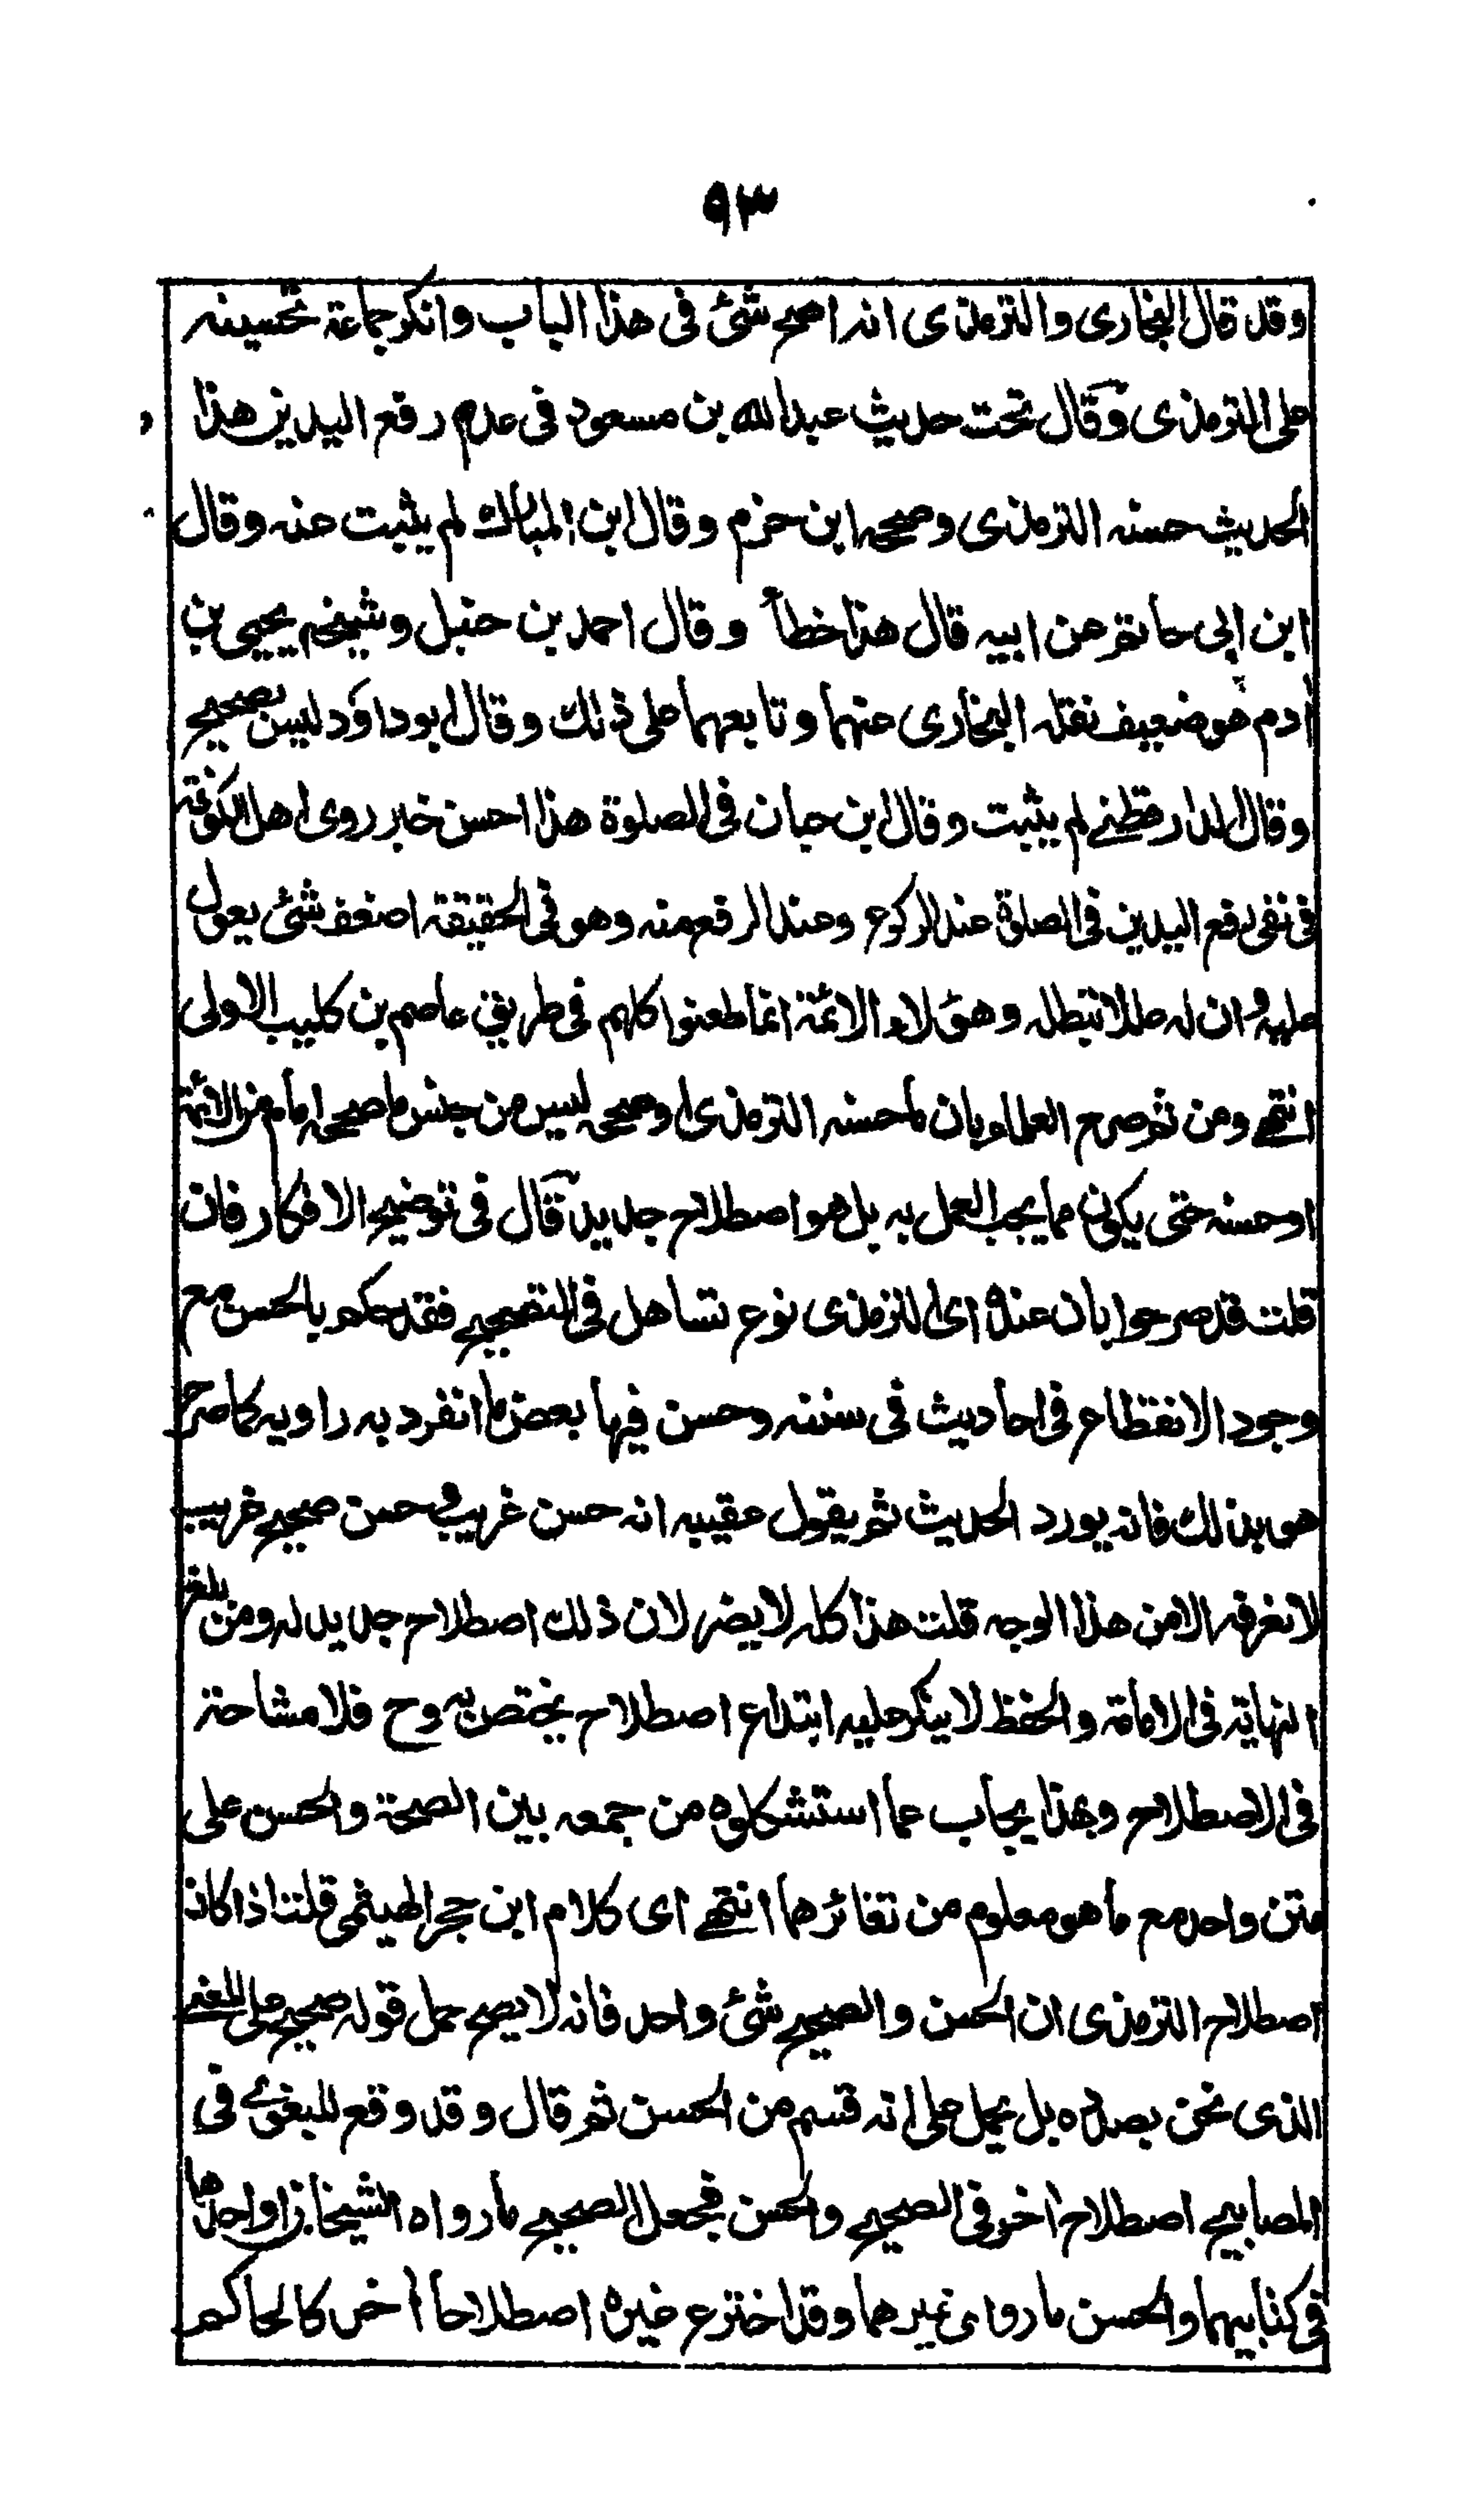 ٩٣
وقد قال البخاری والترمذی انه اصح شئ فی هذا الباب وانکر جماعة تحسینه
علی الترمذی وقال تحت حدیث عبدالله بن مسعود فی عدم رفع الیدین هذا
الحدیث حسنه الترمذی وصححه ابن حزم وقال ابن المبارك لم یثبت عنه وقال
ابن ابی حاتم عن ابیه قال هذا خطأ وقال احمد بن حنبل وشیخه یحیی بن
اٰدم هو ضعیف نقله البخاری عنهما وتابعهما علی ذلك وقال ابو داؤد لیس بصحیح
وقال الدارقطنے لم یثبت وقال ابن حبان فی الصلوة هذا احسن خبر روی اهل الکوفة
فی نفی رفع الیدین فی الصلوة عند الرکوع وعند الرفع منه وهو فی الحقیقة اضعف شئ یعول
علیه وان له عللا تبطله وهؤلاء الائمة انما طعنوا کلهم فی طریق عاصم بن کلیب الاولی
انتهے ومن ثم صرح العلماء بان ما حسنه الترمذی او صححه لیس من جنس ما صححه امام من الائمة
او حسنه حتی یکون مما یجب العمل به بل هو اصطلاح جدید قال فی توضیح الافکار فان
قلت قد صرحوا بان عنده ای الترمذی نوع تساهل فی التصحیح فقد حکم بالحسن مع
وجود الانقطاع فی احادیث فی سننه وحسن فیها بعض ما انفرد به راویه کما صرح
هو بذلك فانه یورد الحدیث ثم یقول عقیبه انه حسن غریب او حسن صحیح غریب
لا نعرفه الا من هذا الوجه قلت هذا کله لا یضر لان ذلك اصطلاح جدید له ومن بلغ
النهایة فی الامامة والحفظ لا ینکر علیه ابتداع اصطلاح یختص به وح فلا مشاحة
فی الاصطلاح وبهذا یجاب عما استشکلوه من جمعه بین الصحة والحسن علی
متن واحد مع ما هو معلوم من تغائرهما انتهے ای کلام ابن حجر الهیثمی قلت اذا کان
اصطلاح الترمذی ان الحسن والصحیح شئ واحد فانه لا یصح حمل قوله صحیح علی المعنے
الذی نحن بصدده بل یحمل علی انه قسم من الحسن ثم قال وقد وقع للبغوی فی
المصابیح اصطلاح اٰخر فی الصحیح والحسن فجعل الصحیح ما رواه الشیخان او احدهما
فی کتابیهما والحسن ما رواه غیرهما وقد اخترع غیره اصطلاحا اٰخر کالحاکم